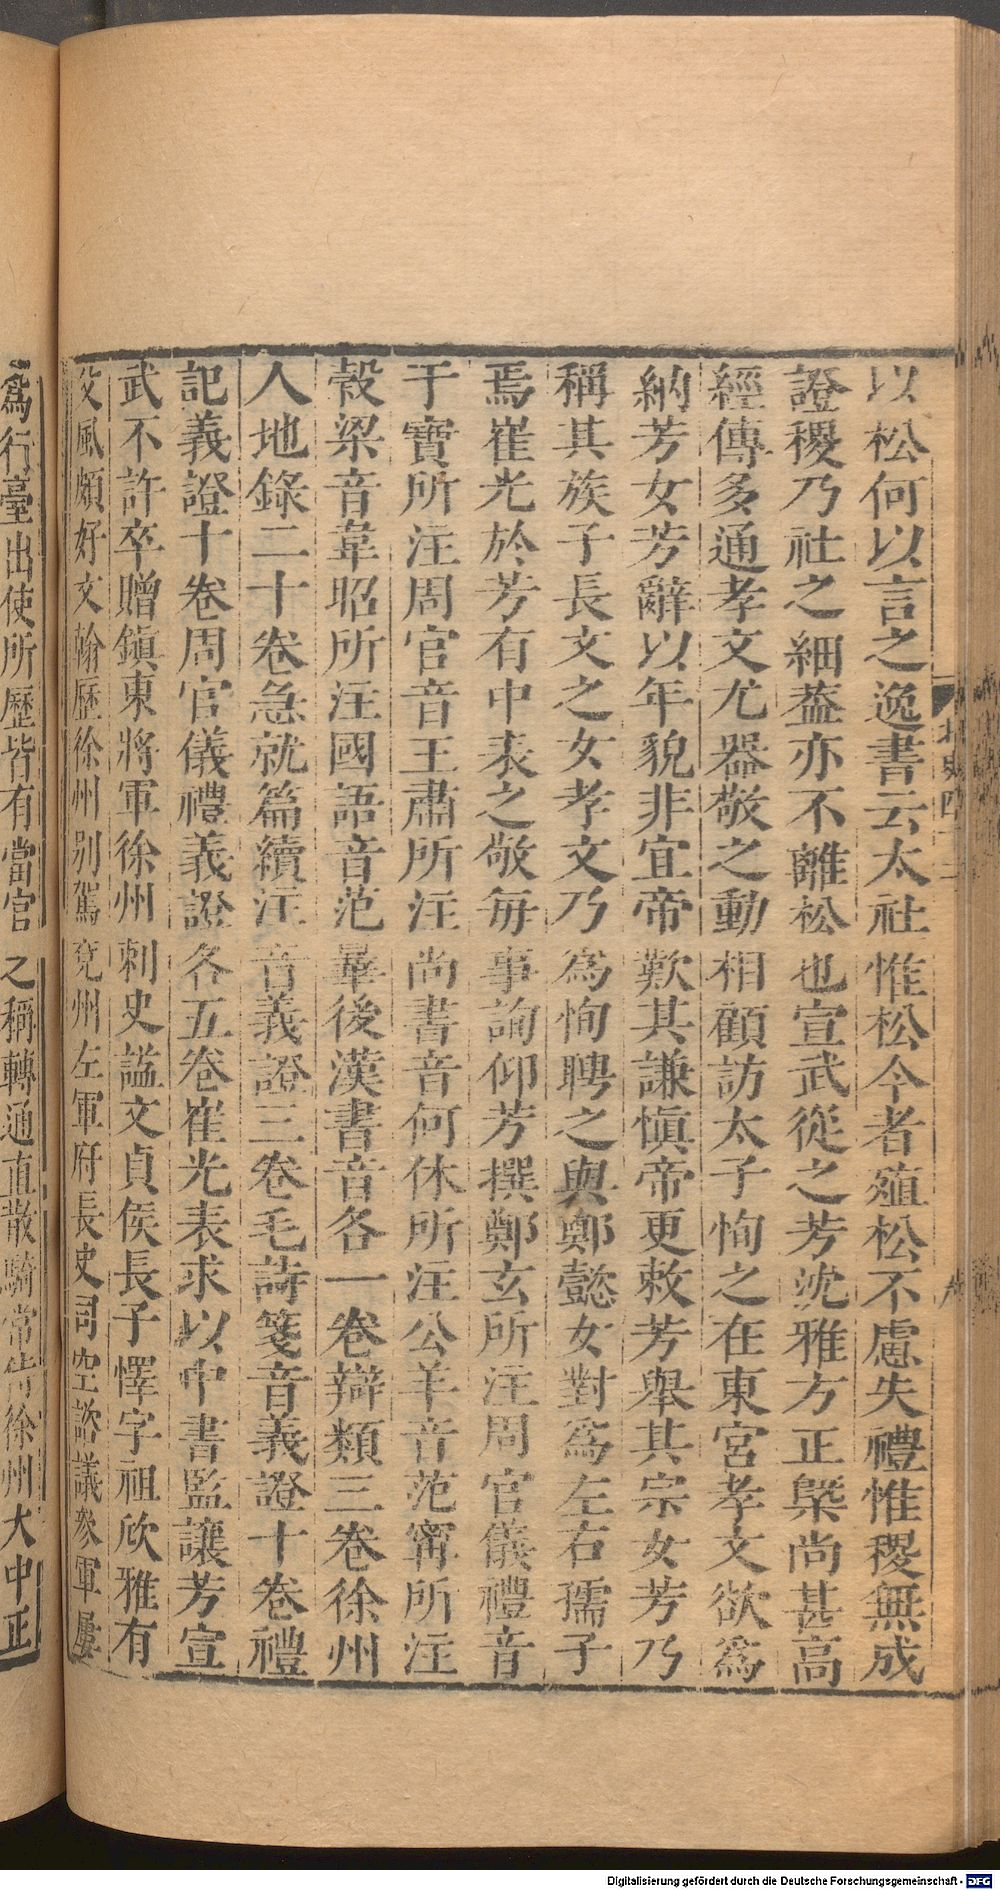 以松何以言之逸書云太社惟松今者殖松不慮失禮惟稷無成
證稷乃社之細葢亦不離松也宣武從之芳沈雅方正槩尚甚高
經傳多通孝文尤器敬之動相顧訪太子恂之在東宮孝文欲爲
納芳女芳辭以年貌非宜帝歎其謙慎帝更敕芳舉其宗女芳乃
稱其族子長文之女孝文乃爲恂聘之與鄭懿女對爲左右孺子
焉崔光於芳有中表之敬每事詢仰芳撰鄭玄所注周官儀禮音
干寶所注周官音王肅所注尚書音何休所注公羊音范甯所注
穀梁音韋昭所注國語音范曄後漢書音各一卷辯類三卷徐州
人地錄二十卷急就篇續注音義證三卷毛詩箋音義證十卷禮
記義證十卷周官儀禮義證各五卷崔光表求以中書監讓芳宣
武不許卒贈鎮東將軍徐州刺史諡文貞侯長子懌字祖欣雅有
父風頗好文翰歷徐州別駕兗州左軍府長史司空諮議參軍屢
爲行臺出使所歷皆有當官之稱轉通直散騎常侍徐州大中正
Digitalisierung gefördert durch die Deutsche Forschungsgemeinschaft - DFG